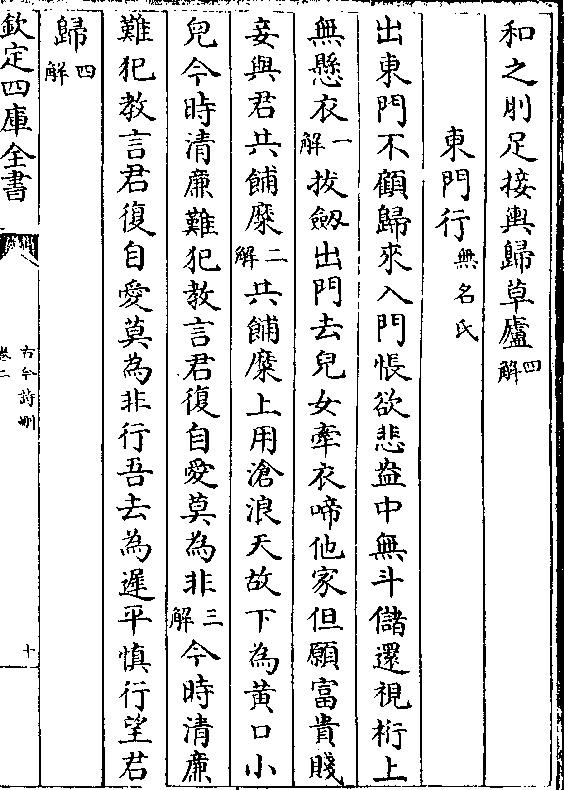 和之刖足接輿歸草廬四解
東門行無名氏
出東門不顧歸來入門悵欲悲盎中無斗儲還視桁上
無懸衣一解拔劔出門去兒女牽衣啼他家但願富貴賤
妾與君共餔糜二解共餔糜上用滄浪天故下為黃口小
兒今時清廉難犯教言君復自愛莫為非三解今時清廉
難犯教言君復自愛莫為非行吾去為遲平慎行望君
歸四解
欽定四庫全書
古今詩刪
卷二
十